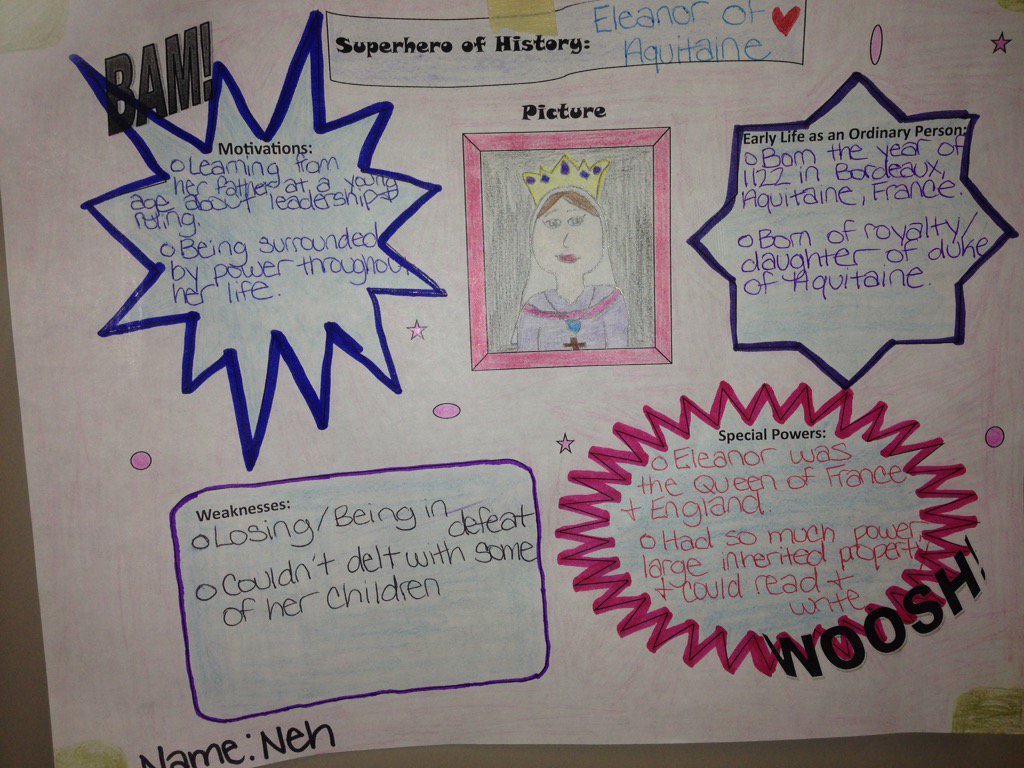 Superhero of History: Eleanor of
Aquitaine
BAM!
Motivations:
Learning from
her father at a young
age about leadership +
ruling.
Being surrounded
by power throughout
her life.
Picture
Early Life as an Ordinary Person:
Born the year of
1122 in Bordeaux,
Aquitaine, France.
Born of royalty/
daughter of duke
of Aquitaine.
Weaknesses:
Losing/Being in defeat
Couldn't delt with some
of her children
Special Powers:
Eleanor was
the Queen of France
+ England.
Had so much power,
large inherited property
+ could read +
write
WOOSH!
Name: Neh